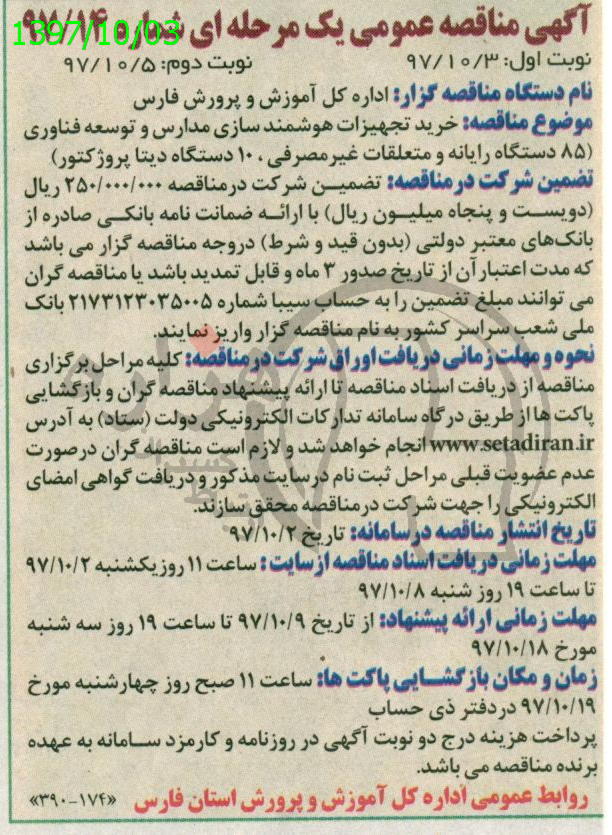 آگهی مناقصه عمومی یک مرحله ای شماره ۹۷/۱۴
1397/10/03
نوبت اول: ۹۷/۱۰/۳ نوبت دوم: ۹۷/۱۰/۵
نام دستگاه مناقصه گزار: اداره کل آموزش و پرورش فارس
موضوع مناقصه: خرید تجهیزات هوشمند سازی مدارس و توسعه فناوری
(۸۵ دستگاه رایانه و متعلقات غیرمصرفی، ۱۰ دستگاه دیتا پروژکتور)
تضمین شرکت در مناقصه: تضمیـن شرکت در مناقصه ۲۵۰/۰۰۰/۰۰۰ ریال
(دویسـت و پنجاه میلیـون ریال) با ارائـه ضمانت نامه بانکـی صادره از
بانک‌های معتبر دولتی (بدون قید و شرط) دروجه مناقصه گزار می باشد
که مدت اعتبار آن از تاریخ صدور ۳ ماه و قابل تمدید باشد یا مناقصه گران
می توانند مبلغ تضمین را به حساب سیبا شماره ۲۱۷۳۱۲۳۰۳۵۰۰۵ بانک
ملی شعب سراسر کشور به نام مناقصه گزار واریز نمایند.
نحوه و مهلت زمانی دریافت اوراق شرکت در مناقصه: کلیه مراحل برگزاری
مناقصه از دریافت اسناد مناقصه تا ارائه پیشنهاد مناقصه گران و بازگشایی
پاکت ها از طریق درگاه سامانه تدارکات الکترونیکی دولت (ستاد) به آدرس
www.setadiran.ir انجام خواهد شد و لازم است مناقصه گران درصورت
عدم عضویت قبلی مراحل ثبت نام درسایت مذکور و دریافت گواهی امضای
الکترونیکی را جهت شرکت درمناقصه محقق سازند.
تاریخ انتشار مناقصه در سامانه: تاریخ ۹۷/۱۰/۲
مهلت زمانی دریافت اسناد مناقصه از سایت: ساعت ۱۱ روز یکشنبه ۹۷/۱۰/۲
تا ساعت ۱۹ روز شنبه ۹۷/۱۰/۸
مهلت زمانی ارائه پیشنهاد: از تاریخ ۹۷/۱۰/۹ تا ساعت ۱۹ روز سه شنبه
مورخ ۹۷/۱۰/۱۸
زمان و مکان بازگشـایی پاکت ها: ساعت ۱۱ صبح روز چهارشنبه مورخ
۹۷/۱۰/۱۹ دردفتر ذی حساب
پرداخت هزینه درج دو نوبت آگهی در روزنامه و کارمزد سـامانه به عهده
برنده مناقصه می باشد.
روابط عمومی اداره کل آموزش و پرورش استان فارس «۳۹۰-۱۷۴»